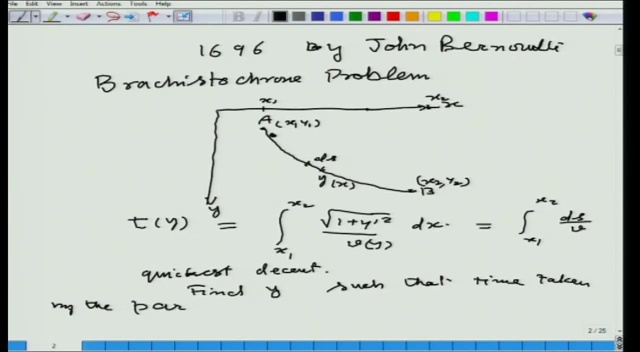 File Edit View Insert Actions Tools Help
1696 By John Bernoulli
Brachistochrone Problem
x₁ x₂ x
A (x₁, y₁)
ds
y(x)
(x₂, y₂)
B
y
t(y) = ∫ₓ₁ˣ² √(1+y'²)/v(y) dx. = ∫ₓ₁ˣ² ds/v
quickest decent.
Find y such that time taken
by the par
2 / 25
2